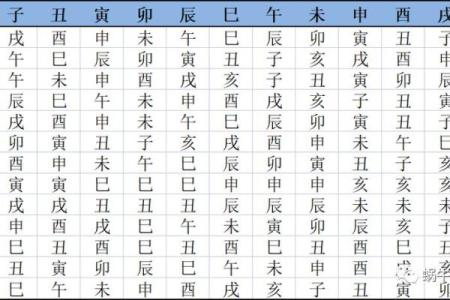 子 丑 寅 卯 辰 巳 午 未 申 酉 戌
戌 酉 申 未 午 巳 辰 卯 寅 丑 子
午 巳 辰 卯 寅 丑 子 亥 戌 酉 申
午 未 申 酉 戌 亥 子 丑 寅 卯 辰
辰 巳 午 未 申 酉 戌 亥 子 丑 寅
戌 酉 申 未 午 巳 辰 卯 寅 丑 子
卯 寅 丑 子 亥 戌 酉 申 未 午 巳
酉 申 未 午 巳 辰 卯 寅 丑 子 亥
寅 寅 巳 巳 巳 申 申 申 亥 亥 亥
戌 戌 丑 丑 丑 辰 辰 辰 未 未 未
申 酉 戌 巳 午 未 寅 卯 辰 亥 子
巳 丑 酉 巳 丑 酉 巳 丑 酉 巳 丑
丑 寅 卯 辰 巳 午 未 申 酉 亥
巳 午 未 申 酉 戌 亥 子 丑 寅 卯
蜗